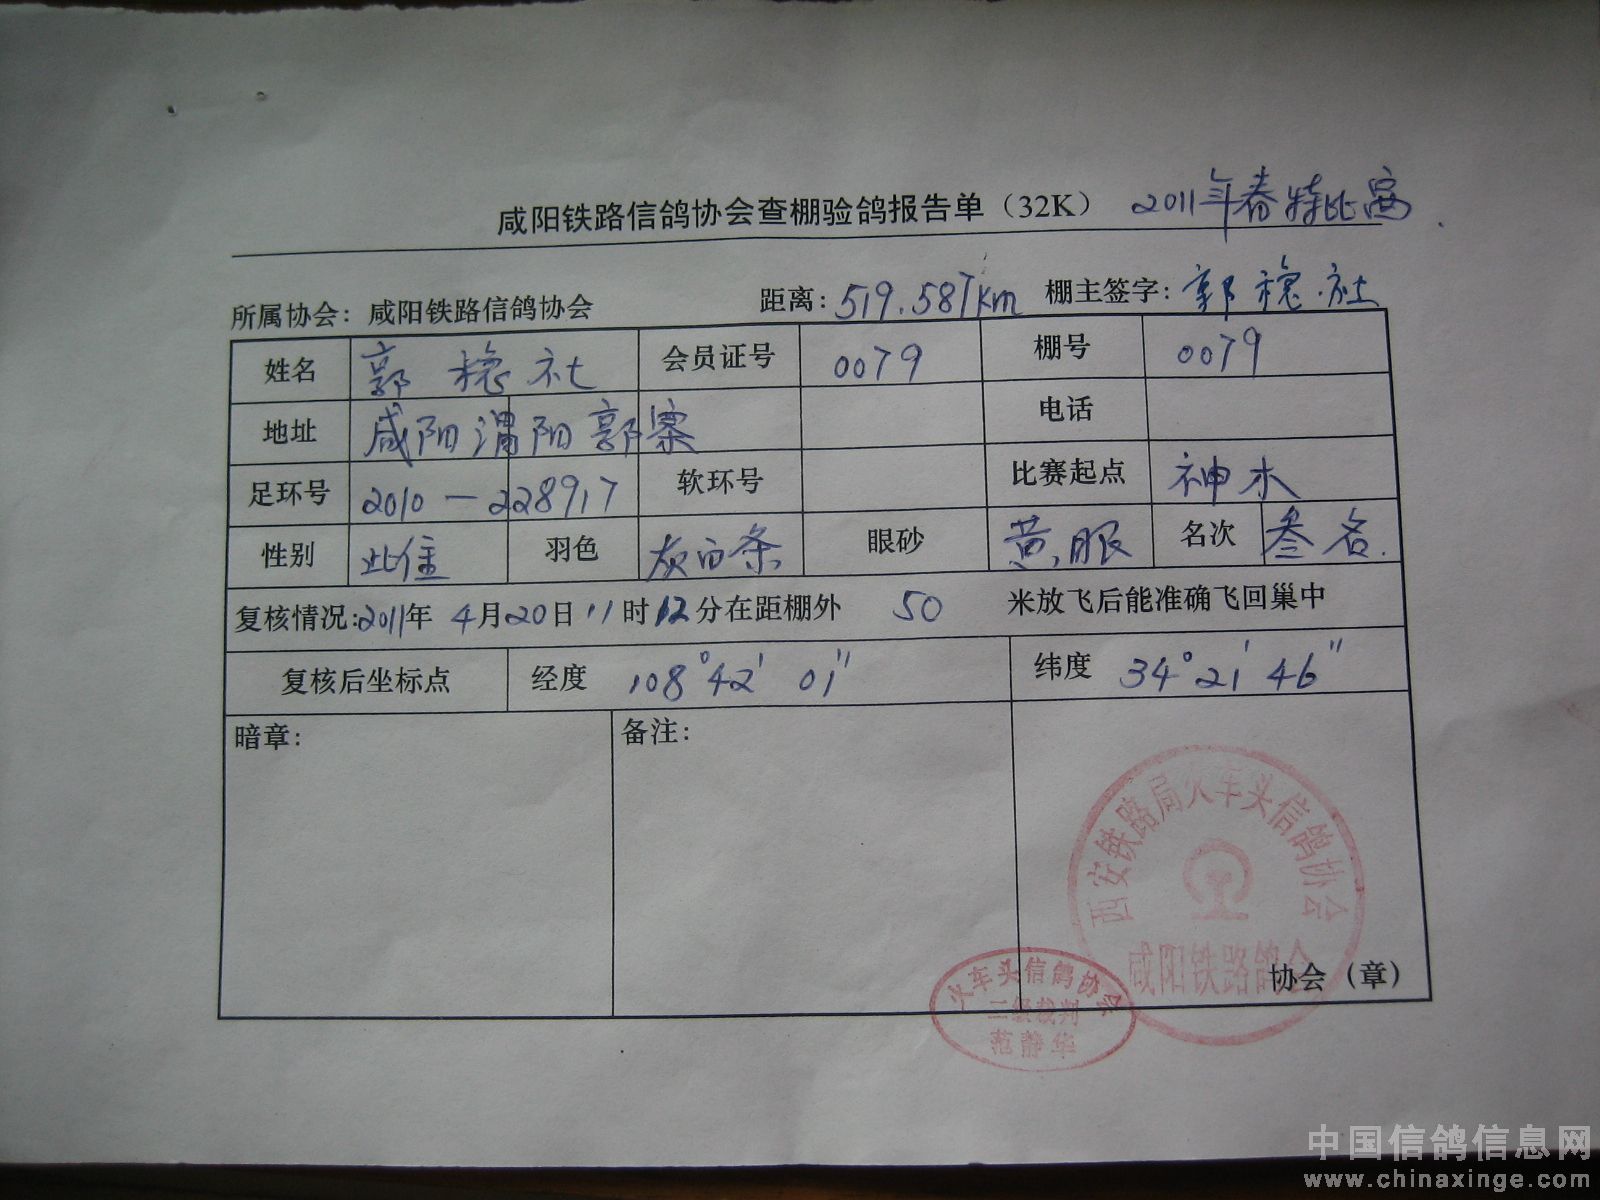 咸阳铁路信鸽协会查棚验鸽报告单（32K） 2011年春特比
所属协会：咸阳铁路信鸽协会 距离：519.587km 棚主签字：郭稳社
姓名 郭稳社 会员证号 0079 棚号 0079
地址 咸阳渭阳郭寨 电话
足环号 2010—228917 软环号 比赛起点 神木
性别 羽色 灰白条 眼砂 黄眼 名次 叁名.
复核情况：2011年 4月20日 11时12分在距棚外 50 米放飞后能准确飞回巢中
复核后坐标点 经度 108°42′01″ 纬度 34°21′46″
暗章： 备注：
西安铁路局火车头信鸽协会
咸阳铁路鸽会
协会（章）
火车头信鸽协会
二级裁判
范静华
中国信鸽信息网
www.chinaxinge.com